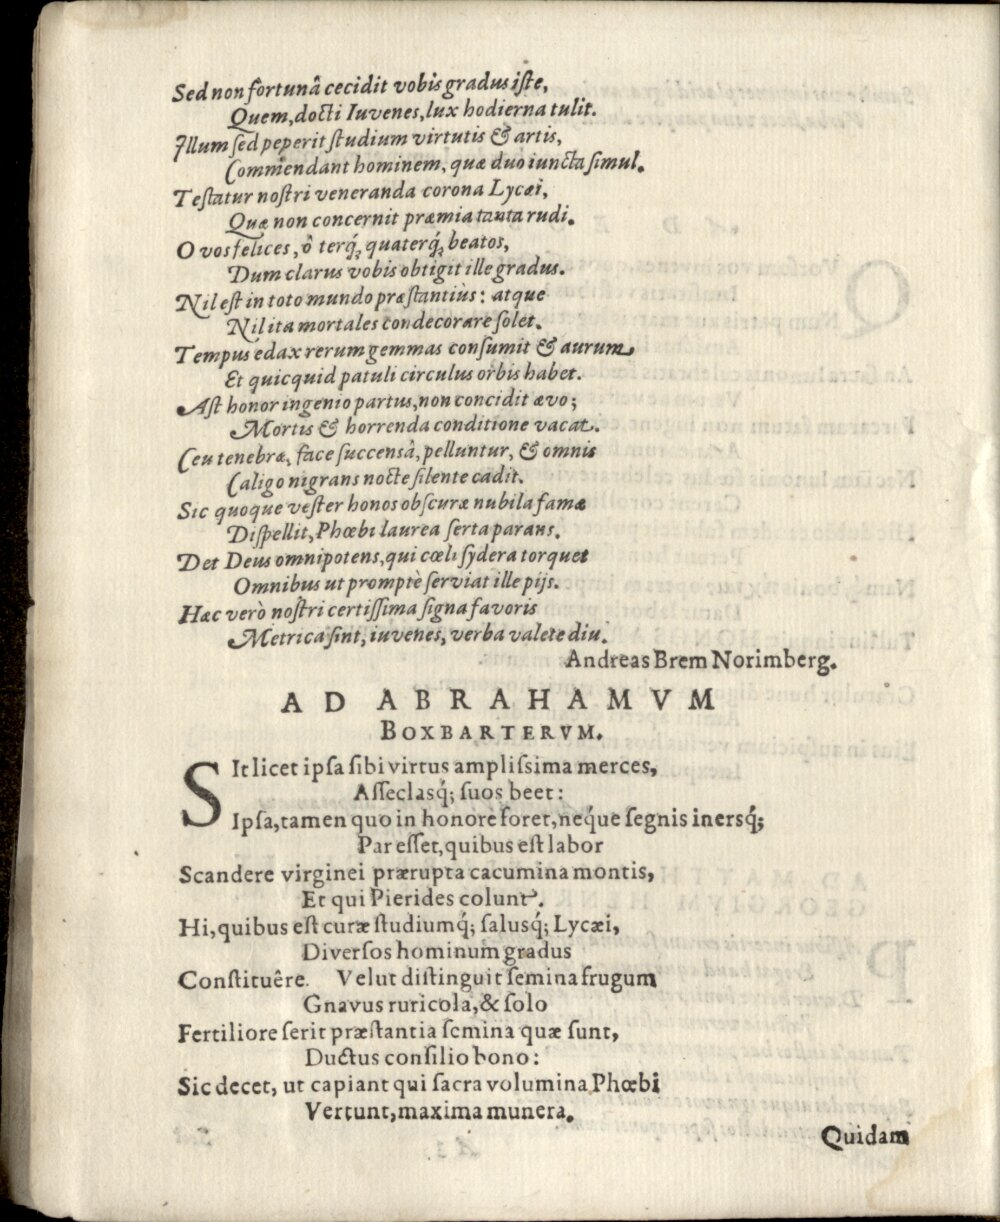 Sed non fortunâ cecidit vobis gradus iſte,
Quem, docti Iuvenes, lux hodierna tulit.
Illum ſed peperit ſtudium virtutis & artis,
Commendant hominem, quæ duo iuncta ſimul.
Teſtatur noſtri veneranda corona Lycæi,
Quæ non concernit præmia tanta rudi.
O vos felices, ô terq́ꝫ quaterq́ꝫ beatos,
Dum clarus vobis obtigit ille gradus.
Nil eſt in toto mundo præſtantiùs: atque
Nil ita mortales condecorare ſolet.
Tempus edax rerum gemmas conſumit & aurum
Et quicquid patuli circulus orbis habet.
Aſt honor ingenio partus, non concidit ævo;
Mortis & horrenda conditione vacat.
Ceu tenebræ, face ſuccensâ, pelluntur, & omnis
Caligo nigrans nocte ſilente cadit.
Sic quoque veſter honos obſcuræ nubila famæ
Diſpellit, Phœbi laurea ſerta parans.
Det Deus omnipotens, qui cœli ſydera torquet
Omnibus ut promptè ſerviat ille pijs.
Hæc verò noſtri certiſſima ſigna favoris
Metrica ſint, iuvenes, verba valete diu.
Andreas Brem Norimberg.
AD ABRAHAMVM
BOXBARTERVM.
SIt licet ipſa ſibi virtus ampliſsima merces,
Aſſeclasq́; ſuos beet:
Ipſa, tamen quo in honore foret, neq́ue ſegnis inersq́;
Par eſſet, quibus eſt labor
Scandere virginei prærupta cacumina montis,
Et qui Pierides colunt.
Hi, quibus eſt curæ ſtudiumq́; ſalusq́; Lycæi,
Diverſos hominum gradus
Conſtituêre. Velut diſtinguit ſemina frugum
Gnavus ruricola, & ſolo
Fertiliore ſerit præſtantia ſemina quæ ſunt,
Ductus conſilio bono:
Sic decet, ut capiant qui ſacra volumina Phœbi
Vertunt, maxima munera.
Quidam